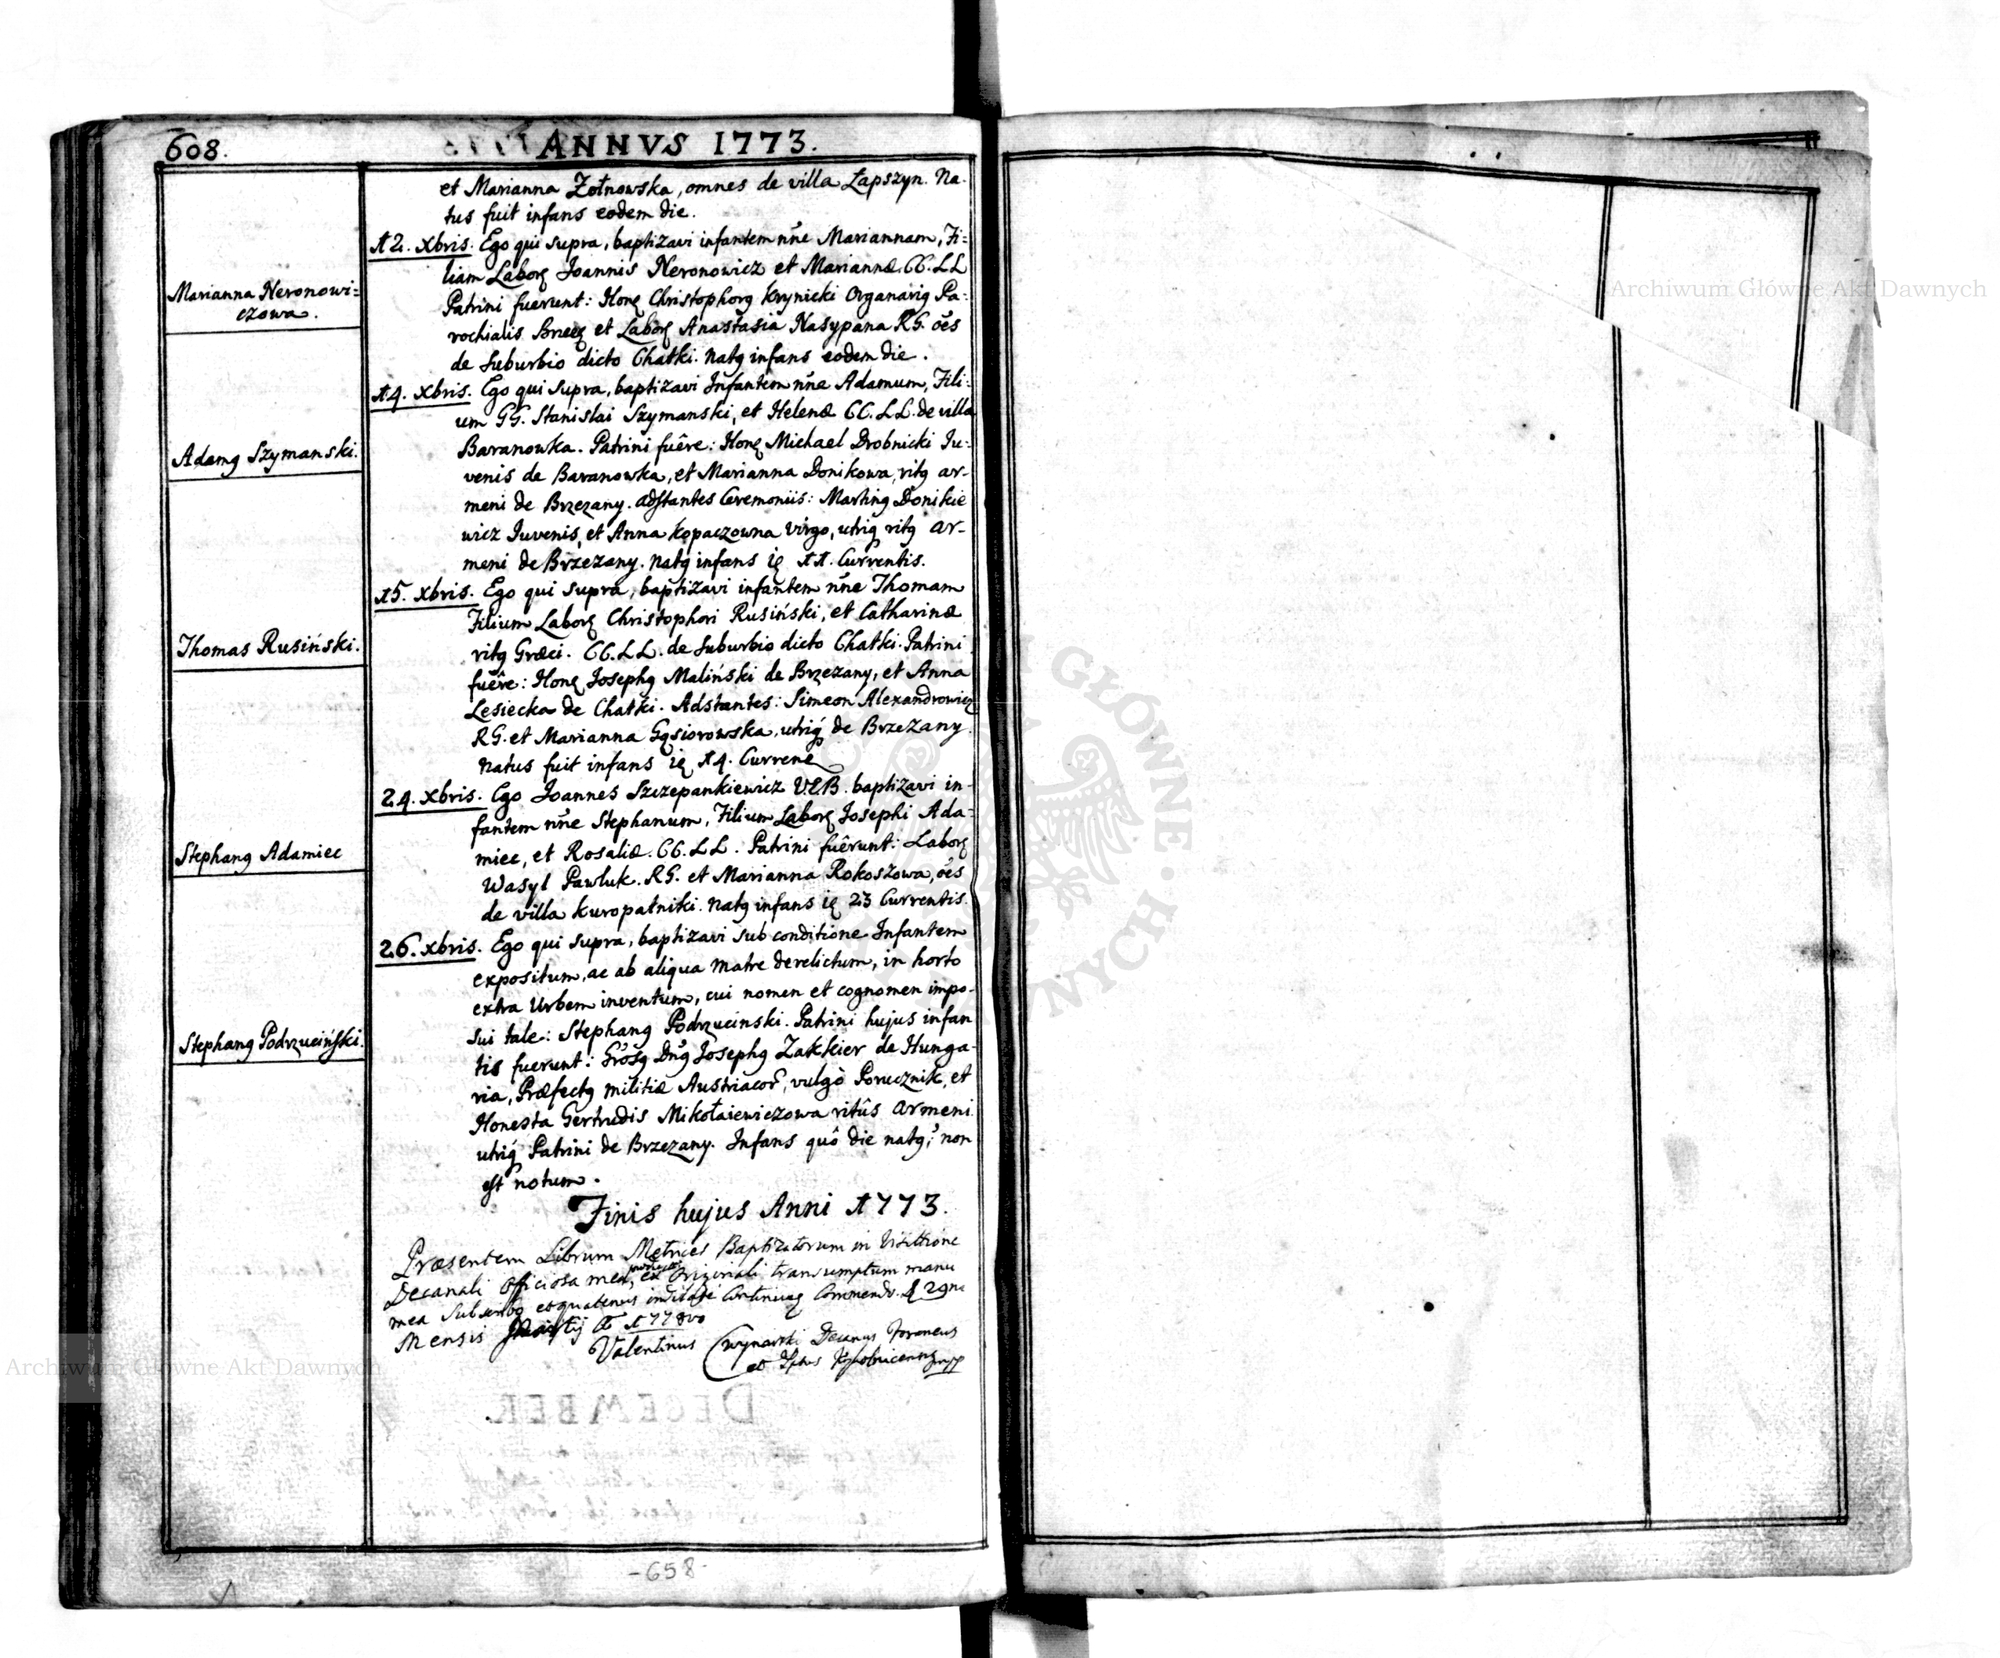 608.
ANNVS 1773.
et Marianna Zołnowska, omnes de villa Łapszyn. Na-
tus fuit infans eodem die.
12. Xbris. Ego qui supra, baptizavi infantem nñe Mariannam, Fi=
liam Laborꝫ Joannis Neronowicz et Mariannæ. CC. LL
Patrini fuerunt: Honꝫ Christophorꝫ Krynicki Organariꝫ Pa-
rochialis Brzezꝫ et Laborꝫ Anastasia Nasypana RG. oẽs
de Suburbio dicto Chatki. Natꝫ infans eodem die.
Marianna Neronowi=
czowa.
14. Xbris. Ego qui supra, baptizavi Infantem nñe Adamum, Fili-
um GG. Stanislai Szymanski, et Helenæ CC. LL. de villa
Baranowka. Patrini fuêre: Honꝫ Michael Drobnicki Ju-
venis de Baranowka, et Marianna Donikowa, ritꝫ ar-
meni de Brzezany. adstantes Ceremoniis: Martinꝫ Donikie
wicz Juvenis, et Anna Kopaczowna Virgo, utriꝫ ritꝫ ar-
meni de Brzezany. Natꝫ infans ię 11. Currentis.
Adamꝫ Szymanski.
15. Xbris. Ego qui supra, baptizavi infantem nñe Thomam
Filium Laborꝫ Christophori Rusiński, et Catharinæ
ritꝫ Græci. CC. LL. de Suburbio dicto Chatki. Patrini
fuêre: Honꝫ Josephꝫ Maliński de Brzezany, et Anna
Lesiecka de Chatki. Adstantes: Simeon Alexandrowicz
RG. et Marianna Gąsiorowska, utriꝫ de Brzezany.
Natus fuit infans ię 14. Currenꝫ
Thomas Rusiński.
24. Xbris. Ego Joannes Szczepankiewicz V.E.B. baptizavi in-
fantem nñe Stephanum, Filium Laborꝫ Josephi Ada=
miec, et Rosaliæ. CC. LL. Patrini fuêrunt: Laborꝫ
Wasyl Pawluk. RG. et Marianna Rokoszowa, oẽs
de villa Kuropatniki. Natꝫ infans ię 23 Currentis.
Stephanꝫ Adamiec
26. Xbris. Ego qui supra, baptizavi sub conditione Infantem
expositum, ac ab aliqua Matre derelictum, in horto
extra Urbem inventum, cui nomen et cognomen impo-
sui tale: Stephanꝫ Podrzucinski. Patrini hujus infan
tis fuerunt: Gñosꝫ Dñꝫ Josephꝫ Zakkier de Hunga-
ria, Præfectꝫ militiæ Austriacoꝝ, vulgò Porucznik, et
Honesta Gertrudis Mikołaiewiczowa ritûs armeni
utriꝫ Patrini de Brzezany. Infans quô die natꝫ, non
est notum.
Stephanꝫ Podrzuciński.
Finis hujus Anni 1773.
Præsentem Librum Metrices Baptizatorum in Visittione
Decanali officiosa mea, ex Originali transumptum manu
mea Subscribo et quatenus Continuaꝫ Commendo. d 29na
Mensis Martij A 1778vo
Valentinus Decanus Foraneus
et
DECEMBER.
-658-
Archiwum Główne Akt Dawnych
Archiwum Główne Akt Dawnych